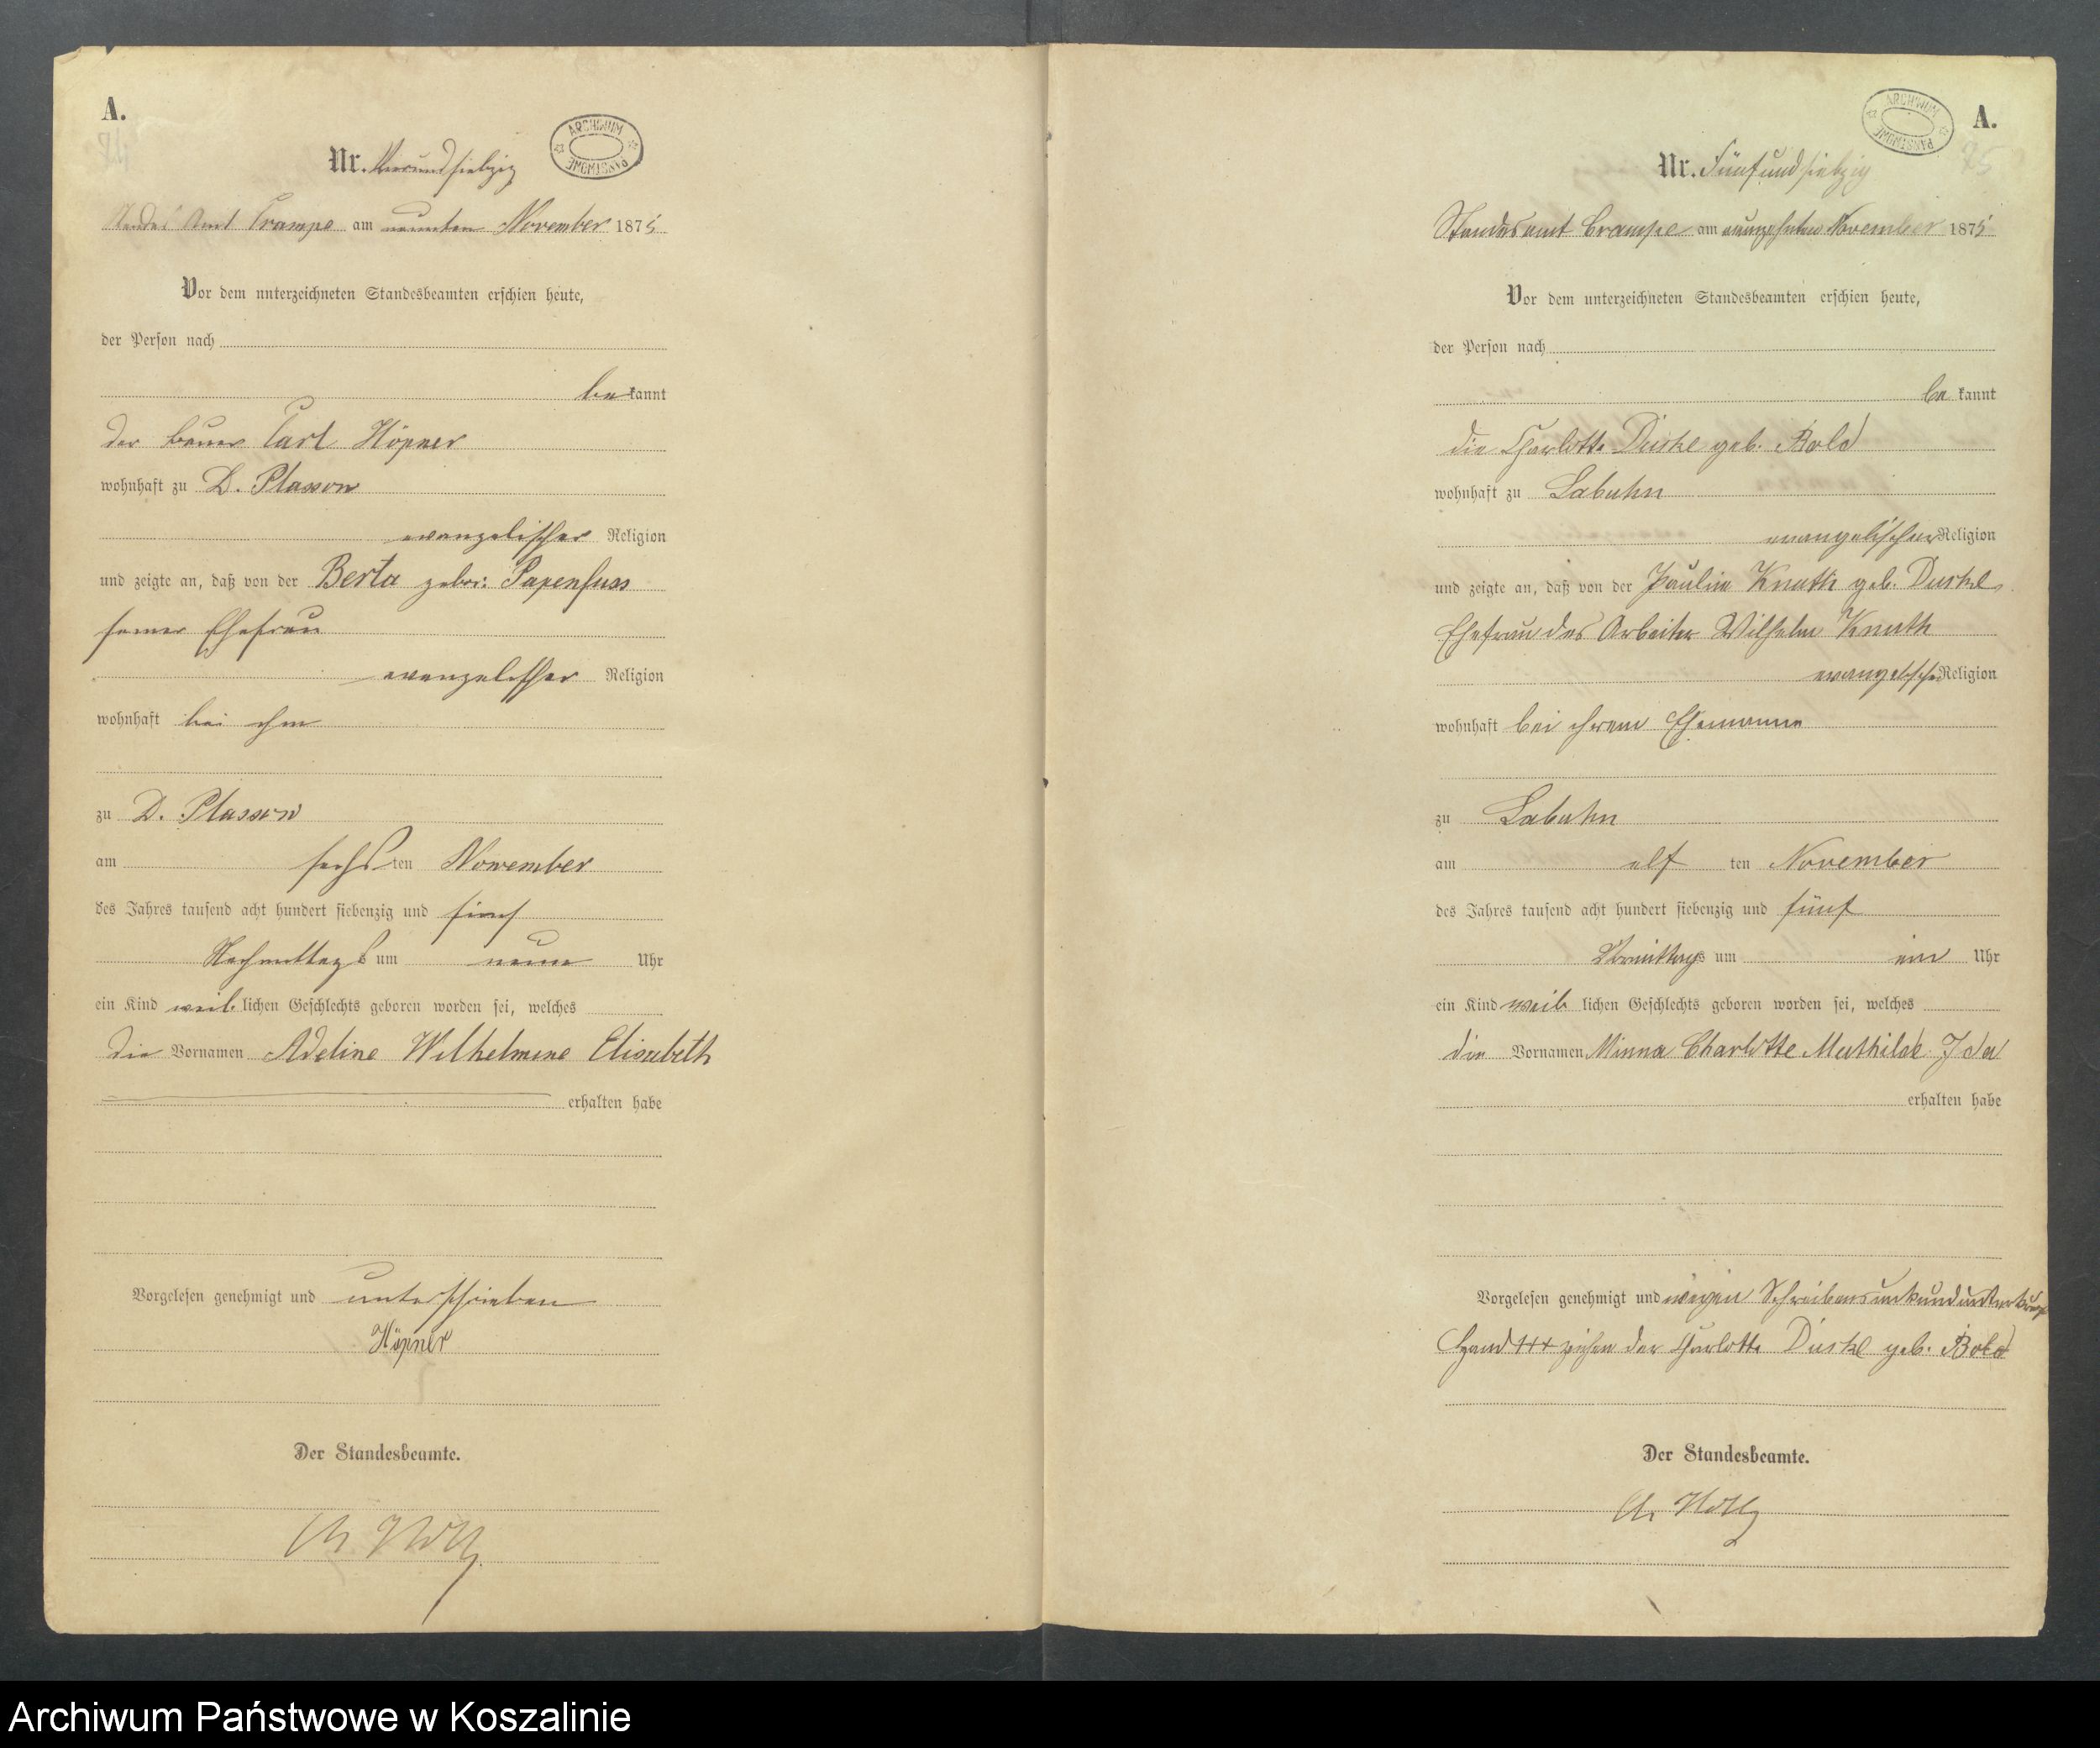 A.
ARCHIWUM PAŃSTWOWE
Nr. Vierundsiebzig
Standes Amt Crampe am neunten November 1875
Vor dem unterzeichneten Standesbeamten erschien heute,
der Person nach
be kannt
der Bauer Carl Höpner
wohnhaft zu D. Plassow
evangelischer Religion
und zeigte an, daß von der Berta gebor: Papenfuss
seiner Ehefrau
evangelischer Religion
wohnhaft bei ihm
zu D. Plassow
am sechs ten November
des Jahres tausend acht hundert siebenzig und fünf
Nachmittags um neun Uhr
ein Kind weib lichen Geschlechts geboren worden sei, welches
die Vornamen Adeline Wilhelmine Elisabeth
erhalten habe
Vorgelesen genehmigt und unterschrieben
Höpner
Der Standesbeamte.
A.
ARCHIWUM PAŃSTWOWE
75
Nr. Fünfundsiebzig
Standesamt Crampe am neunzehnten November 1875
Vor dem unterzeichneten Standesbeamten erschien heute,
der Person nach
be kannt
die Charlotte Duske geb. Bold
wohnhaft zu Labuhn
evangelischer Religion
und zeigte an, daß von der Pauline Knuth geb. Duske
Ehefrau des Arbeiter Wilhelm Knuth
evangelischer Religion
wohnhaft bei ihrem Ehemanne
zu Labuhn
am elf ten November
des Jahres tausend acht hundert siebenzig und fünf
Vormittags um ein Uhr
ein Kind weib lichen Geschlechts geboren worden sei, welches
die Vornamen Minna Charlotte Mathilde Ida
erhalten habe
Vorgelesen genehmigt und wegen Schreibensunkund
Hand +++ zeichen der Charlotte Duske geb. Bold
Der Standesbeamte.
Archiwum Państwowe w Koszalinie